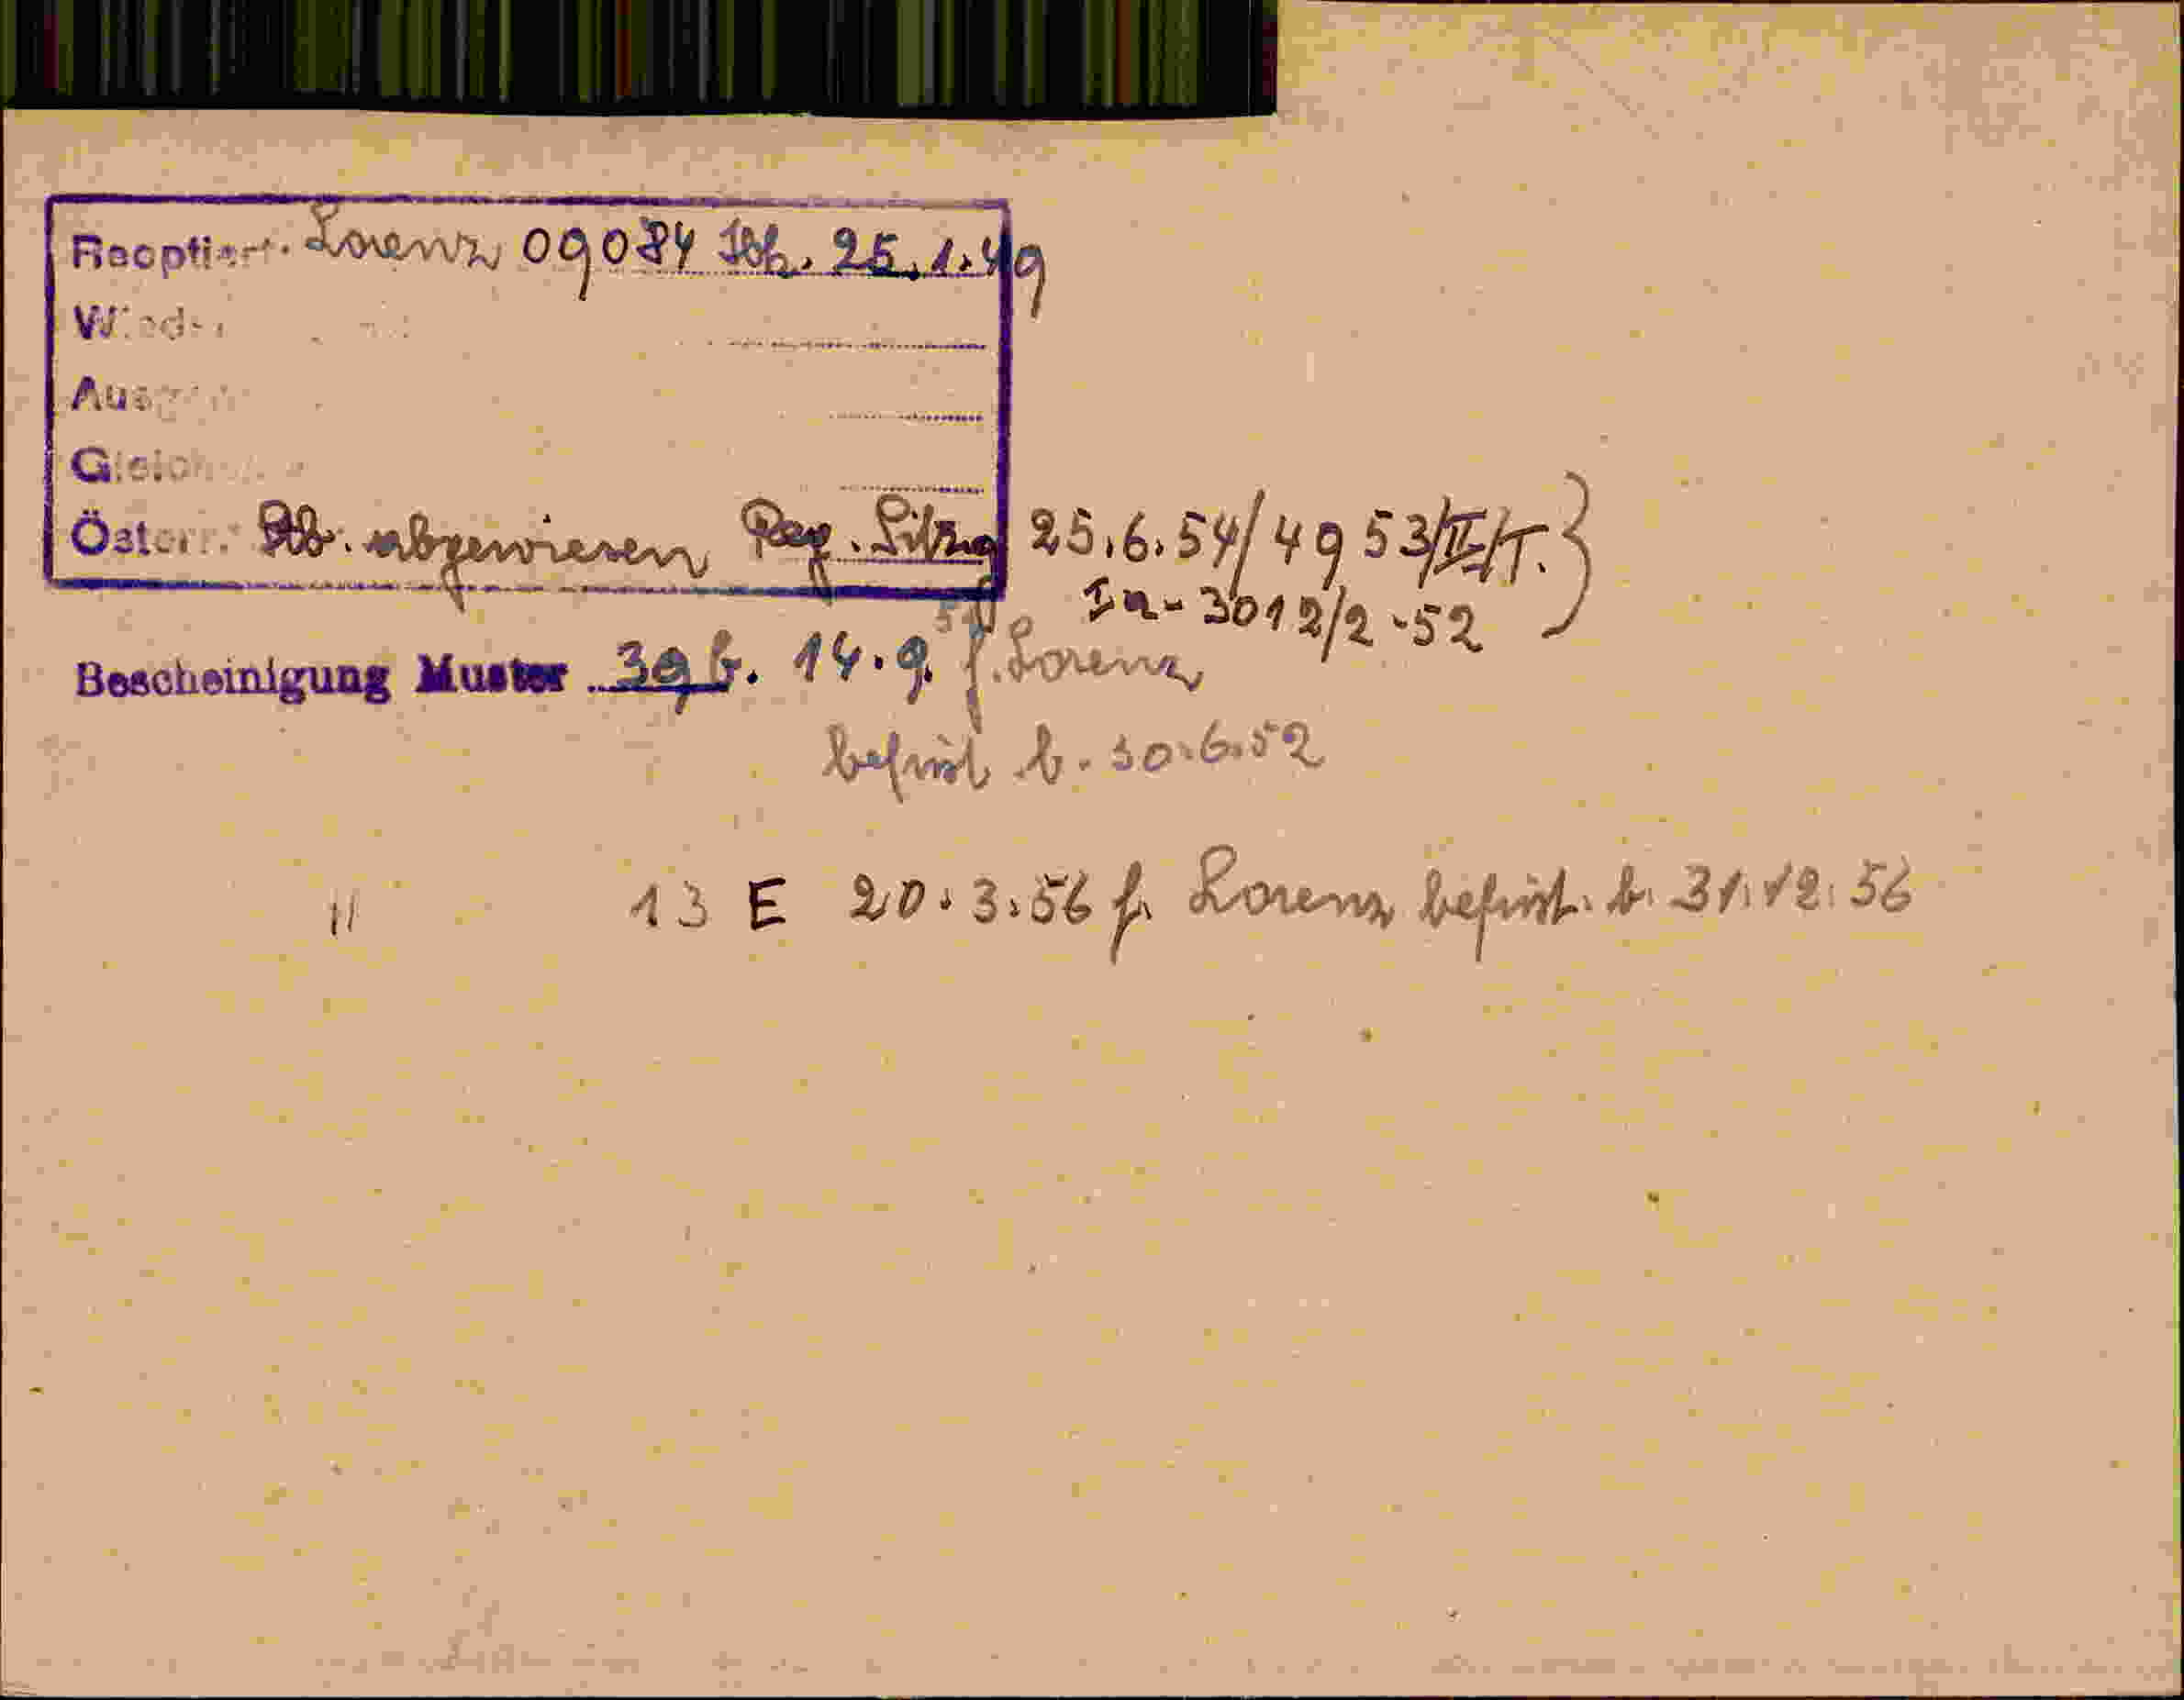 Reoptiert. Lorenz 09084 25.1.49
Österr. Stb. abgewiesen Reg. Sitzg 25.6.54/4953/II/T.
Ia-3012/2-52
Bescheinigung Muster 39 b. 14.9. f. Lorenz
befrist. b. 30.6.52
" 13 E 20.3.56 f. Lorenz befrist. b. 31.12.56